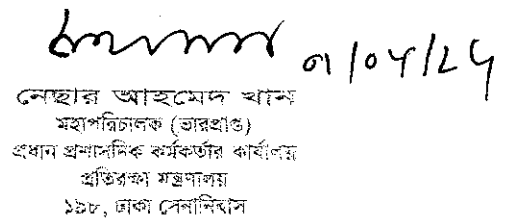 নেছার আহমেদ খান
মহাপরিচালক (ভারপ্রাপ্ত)
প্রধান প্রশাসনিক কর্মকর্তার কার্যালয়
প্রতিরক্ষা মন্ত্রণালয়
১৯৮, ঢাকা সেনানিবাস